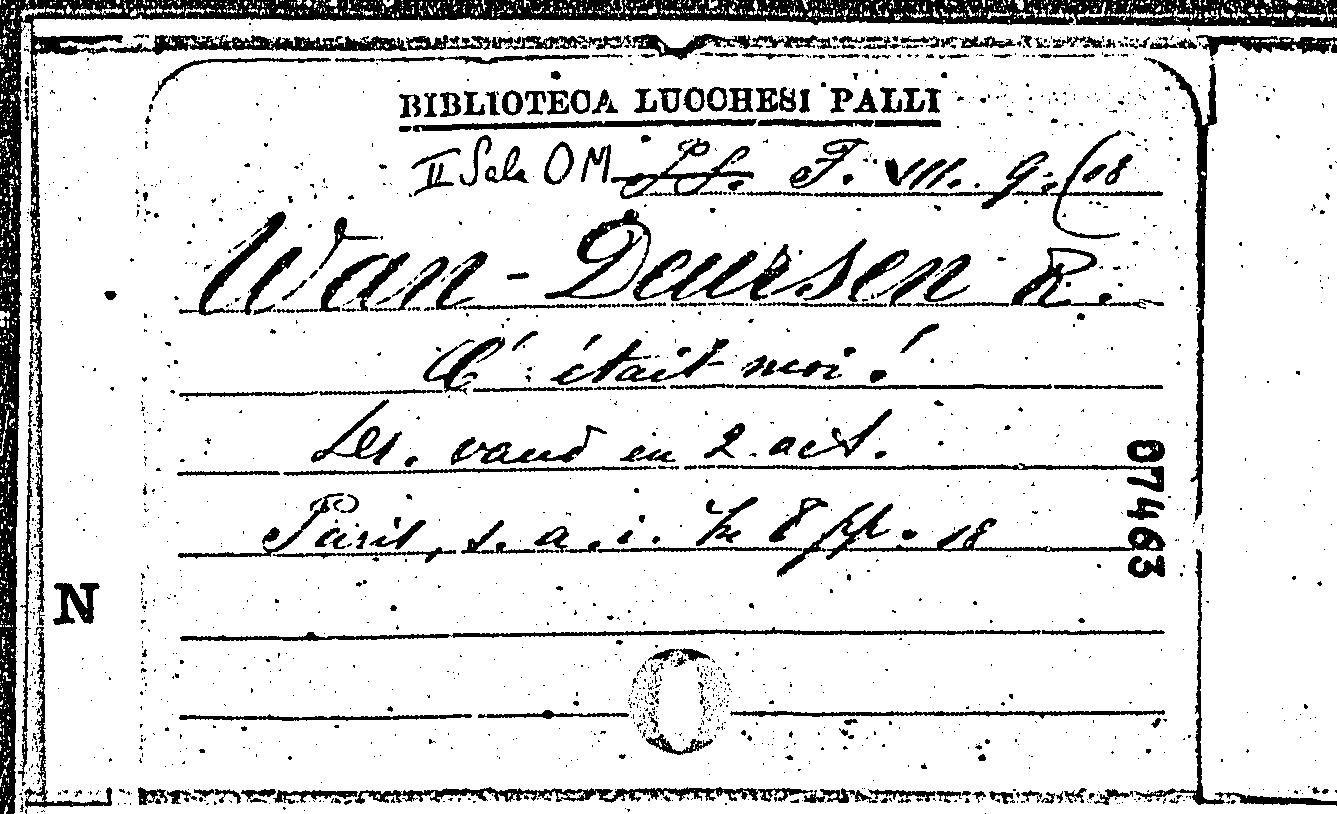 BIBLIOTECA LUCCHESI PALLI
II Sala OM L.L. F. VII. 9.(08
Wan-Deursen R.
C'était moi!
vaud en 2 act.
Paris, s. a. i. 8 pp. 18
07463
N